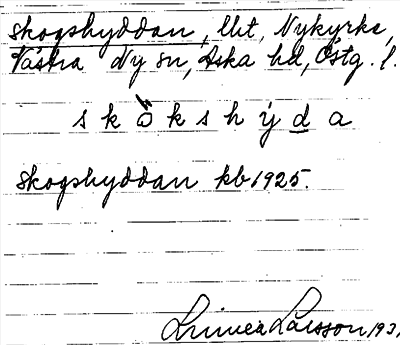 Skogshyddan, lht, Nykyrka,
Västra Ny sn, Aska hd, Östg. l.
s k ò̈ k s h ý d a
Skogshyddan kb 1925.
Linnea Larsson 193